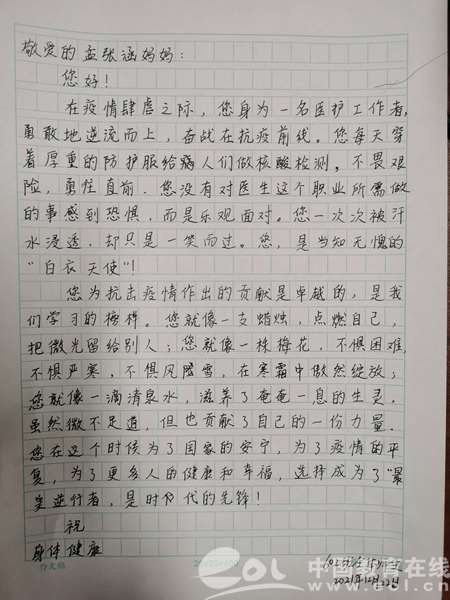 敬爱的孟张涵妈妈：
您好！
在疫情肆虐之际，您身为一名医护工作者，
勇敢地逆流而上，奋战在抗疫前线。您每天穿
着厚重的防护服给病人们做核酸检测。不畏艰
险，勇往直前。您没有对医生这个职业所需做
的事感到恐惧，而是乐观面对。您一次次被汗
水浸透，却只是一笑而过。您，是当知无愧的
“白衣天使”！
您为抗击疫情作出的贡献是卓越的，是我
们学习的榜样。您就像一支蜡烛，点燃自己，
把微光留给别人；您就像一株梅花，不惧困难，
不惧严寒，不惧风隆雪，在寒霜中傲然绽放；
您就像一滴清泉水，滋养了奄奄一息的生灵。
虽然微不足道，但也贡献了自己的一份力量。
您在这个时候为了国家的安宁，为了疫情的平
复，为了更多人的健康和幸福，选择成为了“最
美逆行者，是时代的先锋！
祝
身体健康
2021年12月22日
作文稿
中国教育在线
www.eol.cn